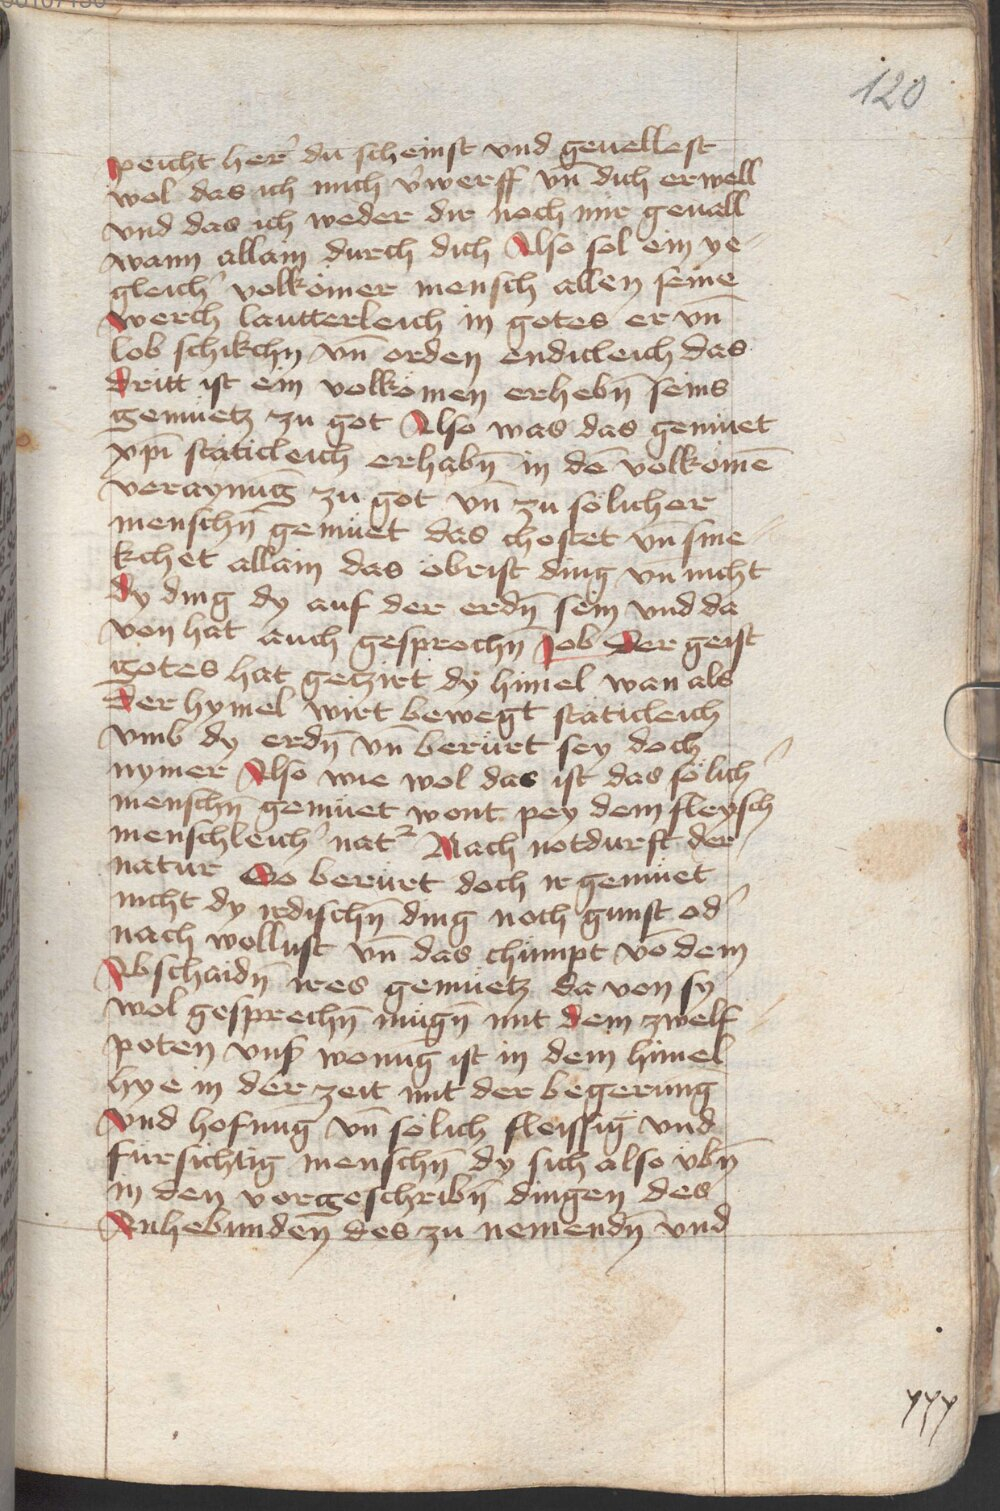 120
peicht her̄ du scheinst vnd geuellest
wol das ich mich v̾werff vn̄ dich erwell
vnd das ich weder dir noch mir geuall
wann allain durch dich Also sol ein ye
gleich̾ volkōmer mensch allen seine
werch lautterleich in gotes er vn̄
lob schikchn̄ vn̄ orden endicleich das
dritt ist ein volkōmen erhebn̄ seins
gemuetz zu got Also was das gemuet
xp̄i stäticleich erhabn̄ in dē volkomē
veraynūg zu got vn̄ zu sölicher
menschn̄ gemüet das chostet vn̄ sme
kchet allain das öbrist ding vn̄ nicht
dy ding dy auf der erdn̄ sein vnd da
von hat auch gesprochn̄ Job Der geist
gotes hat getzirt dy himel wan als
der hymel wirt bewegt stäticleich
vmb dy erdn̄ vn̄ berürt sey doch
nymer Also wie wol das ist das sölich̾
menschn̄ gemüet wont pey dem fleysch
menschleich̾ nat² Nach notdurft der
natur So berürt doch ir gemüet
nicht dy irdischn̄ ding noch gunst od̾
nach wollust vn̄ das chümpt vō dem
Abschaidn̄ ires gemüetz da von sy
wol gesprechn̄ mügn̄ mit dem zwelf
poten vnß wonūg ist in dem himel
hye in der zeit mit der begerung
vnd hofnūg vn̄ sölich fleissig vnd
fürsichtig menschn̄ dy sich also vbn̄
in den vorgeschribn̄ dingen des
Anhebunden̄ des zu nemendn̄ vnd
xxx